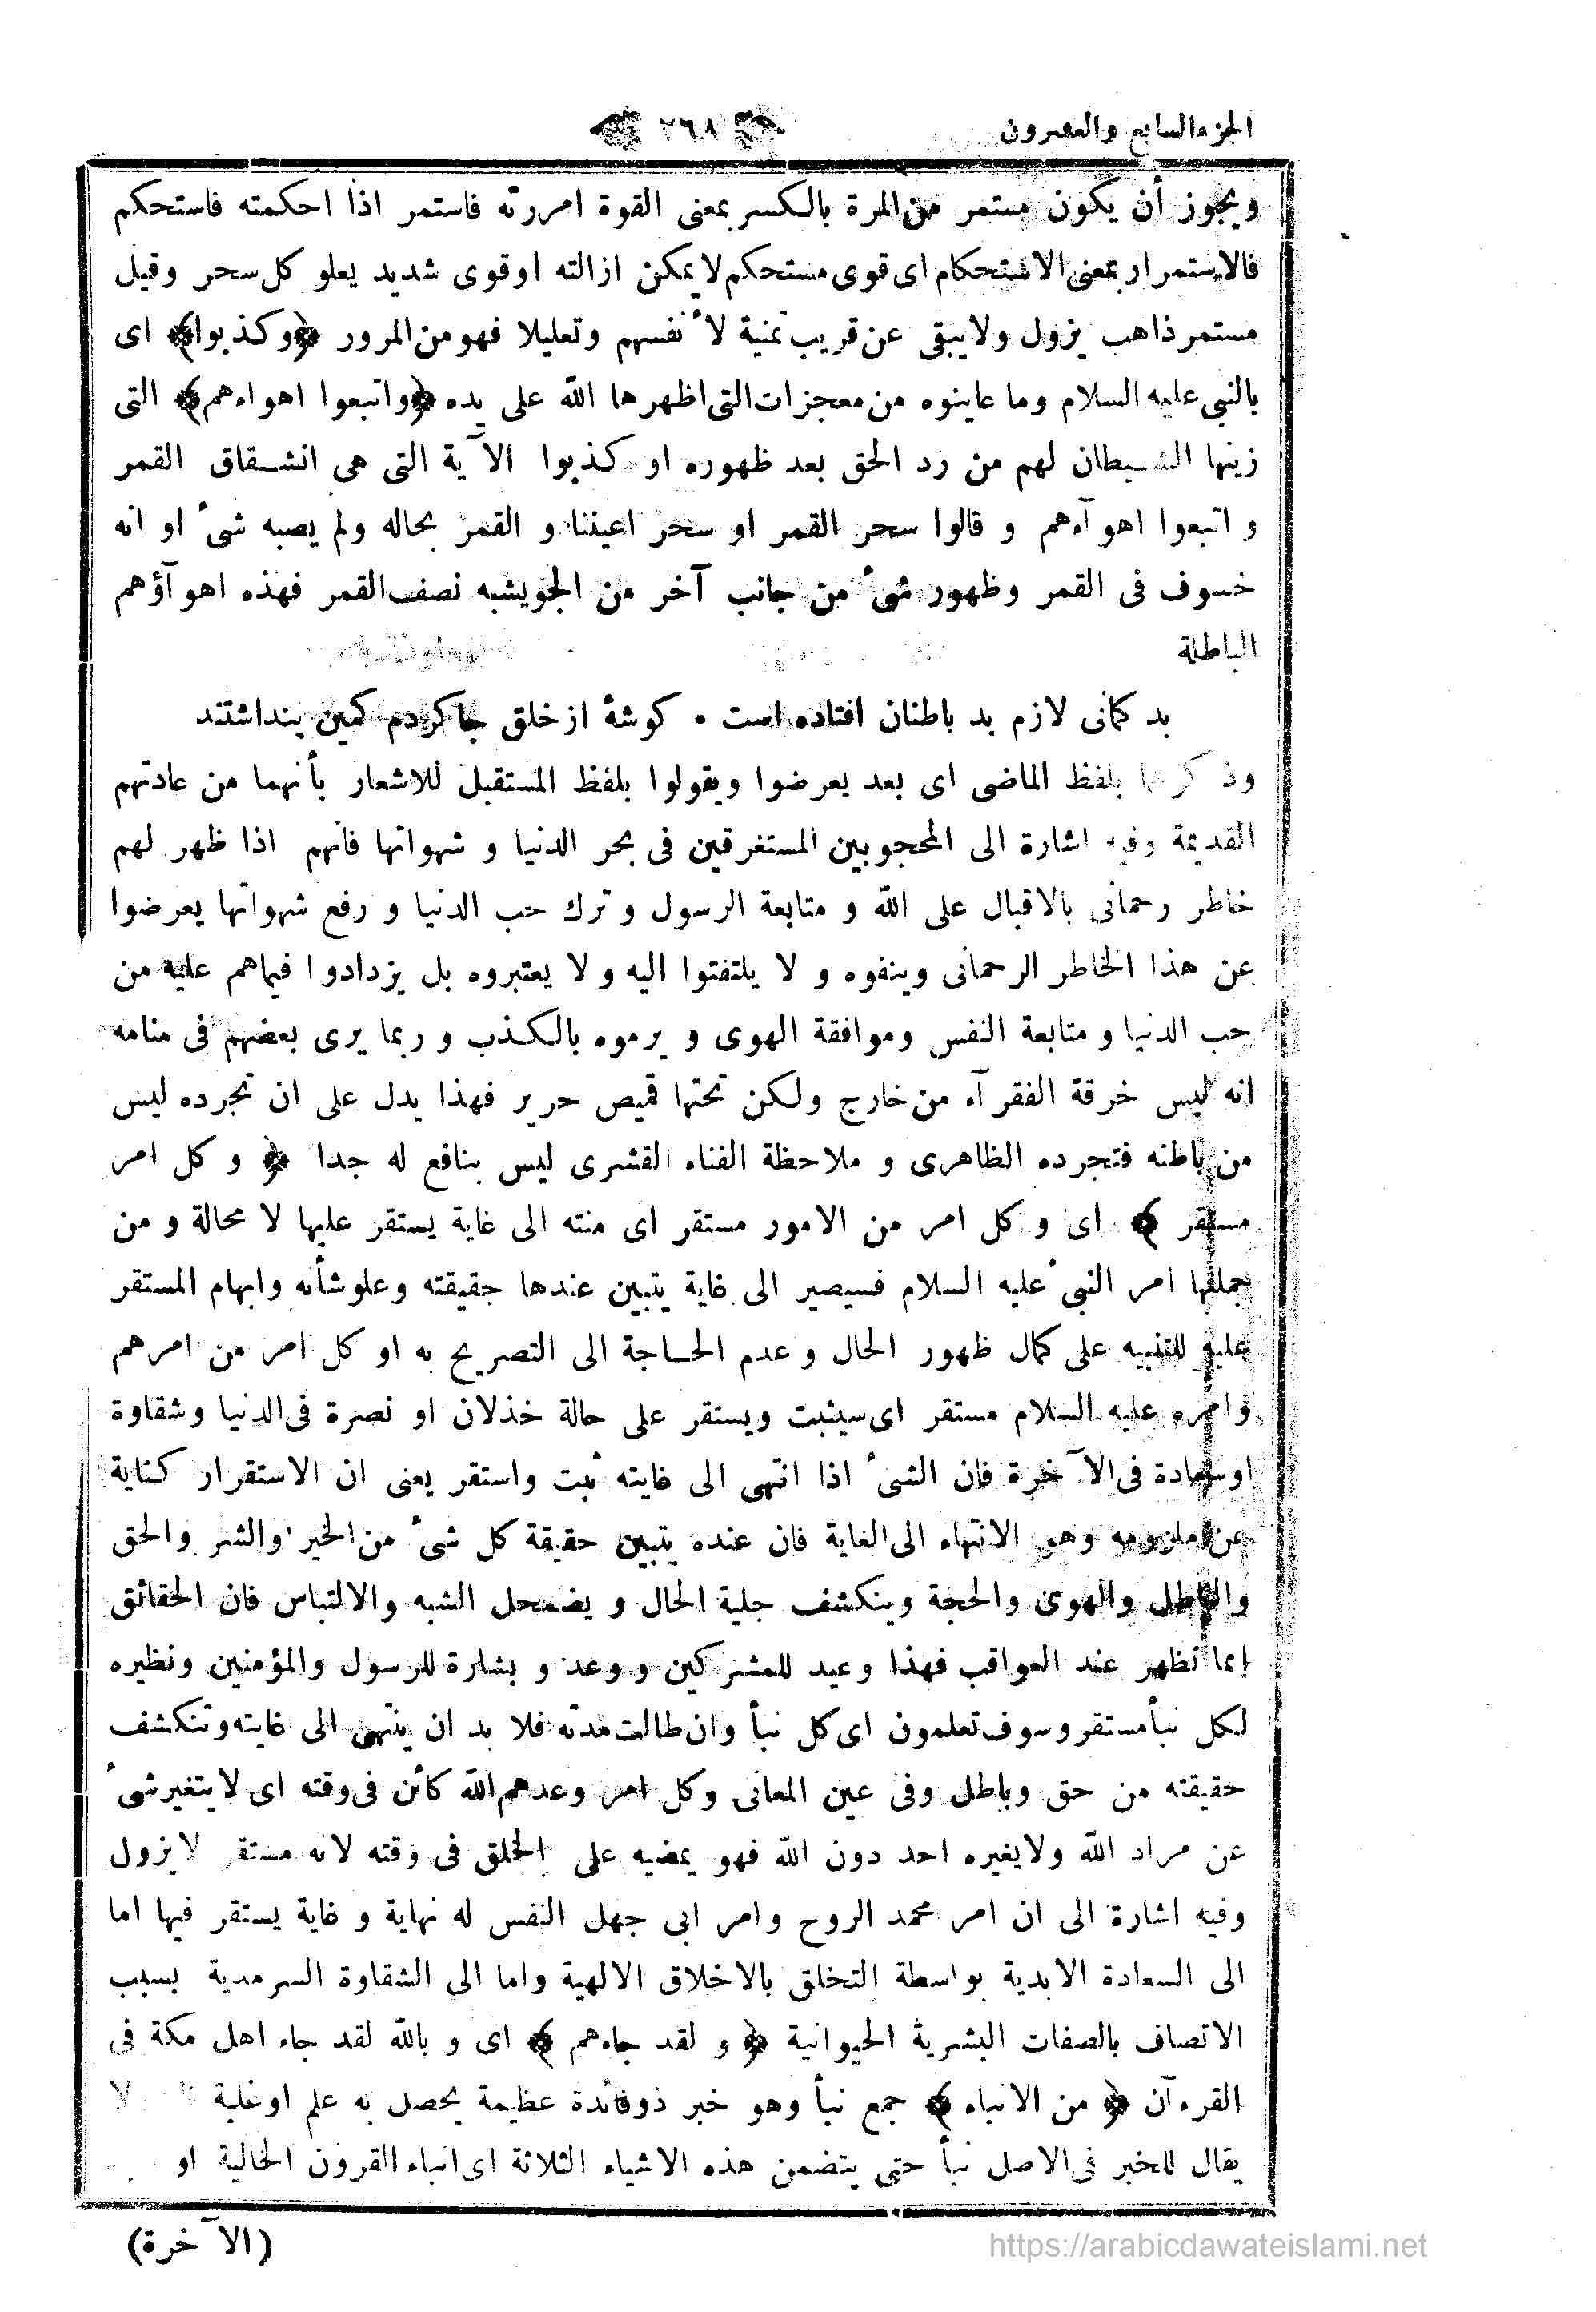 الجزء السابع والعشرون
٢٦٨
ويجوز أن يكون مستمر من المرة بالكسر بمعنى القوة امررته فاستمر اذا احكمته فاستحكم
فالاستمرار بمعنى الاستحكام اى قوى مستحكم لا يمكن ازالته او قوى شديد يعلو كل سحر وقيل
مستمر ذاهب يزول ولا يبقى عن قريب تمنية لأنفسهم وتعليلا فهو من المرور ﴿وكذبوا﴾ اى
بالنبى عليه السلام وما عاينوه من معجزات التى اظهرها الله على يده ﴿واتبعوا اهواءهم﴾ التى
زينها الشيطان لهم من رد الحق بعد ظهوره او كذبوا الآية التى هى انشقاق القمر
واتبعوا اهوآءهم و قالوا سحر القمر او سحر اعيننا و القمر بحاله ولم يصبه شىٔ او انه
خسوف فى القمر وظهور شىٔ من جانب آخر من الجو يشبه نصف القمر فهذه اهوآؤهم
الباطلة
بد كمانى لازم بد باطنان افتاده است • كوشۀ از خلق جا كردم كمين پنداشتند
وذكرها بلفظ الماضى اى بعد يعرضوا ويقولوا بلفظ المستقبل للاشعار بأنهما من عادتهم
القديمة وفيه اشارة الى المحجوبين المستغرقين فى بحر الدنيا و شهواتها فانهم اذا ظهر لهم
خاطر رحمانى بالاقبال على الله و متابعة الرسول و ترك حب الدنيا و رفع شهواتها يعرضوا
عن هذا الخاطر الرحمانى وينفوه و لا يلتفتوا اليه و لا يعتبروه بل يزدادوا فيماهم عليه من
حب الدنيا و متابعة النفس وموافقة الهوى و يرموه بالكذب و ربما يرى بعضهم فى منامه
انه لبس خرقة الفقرآء من خارج ولكن تحتها قميص حرير فهذا يدل على ان تجرده ليس
من باطنه فتجرده الظاهرى و ملاحظة الفناء القشرى ليس بنافع له جدا ﴿ و كل امر
مستقر ﴾ اى و كل امر من الامور مستقر اى منته الى غاية يستقر عليها لا محالة و من
جملتها امر النبىٔ عليه السلام فسيصير الى غاية يتبين عندها حقيقته وعلو شأنه وابهام المستقر
عليه للتنبيه على كمال ظهور الحال و عدم الحاجة الى التصريح به او كل امر من امرهم
وامره عليه السلام مستقر اى سيثبت ويستقر على حالة خذلان او نصرة فى الدنيا وشقاوة
او سعادة فى الآخرة فان الشىٔ اذا انتهى الى غايته ثبت واستقر يعنى ان الاستقرار كناية
عن ملزومه وهو الانتهاء الى الغاية فان عنده يتبين حقيقة كل شىٔ من الخير والشر والحق
والباطل والهوى والحجة وينكشف جلية الحال و يضمحل الشبه والالتباس فان الحقائق
انما تظهر عند العواقب فهذا وعيد للمشركين و وعد و بشارة للرسول والمؤمنين ونظيره
لكل نبأ مستقر وسوف تعلمون اى كل نبأ وان طالت مدته فلا بد ان ينتهى الى غايته وتنكشف
حقيقته من حق وباطل وفى عين المعانى وكل امر وعدهم الله كائن فى وقته اى لا يتغير شىٔ
عن مراد الله ولا يغيره احد دون الله فهو يمضيه على الخلق فى وقته لانه مستقر لا يزول
وفيه اشارة الى ان امر محمد الروح وامر ابى جهل النفس له نهاية و غاية يستقر فيها اما
الى السعادة الابدية بواسطة التخلق بالاخلاق الالهية واما الى الشقاوة السرمدية بسبب
الاتصاف بالصفات البشرية الحيوانية ﴿ و لقد جاءهم ﴾ اى و بالله لقد جاء اهل مكة فى
القرءآن ﴿ من الانباء ﴾ جمع نبأ وهو خبر ذو فائدة عظيمة يحصل به علم او غلبة لا
يقال للخبر فى الاصل نبأ حتى يتضمن هذه الاشياء الثلاثة اى انباء القرون الخالية او
(الآخرة)
https://arabicdawateislami.net